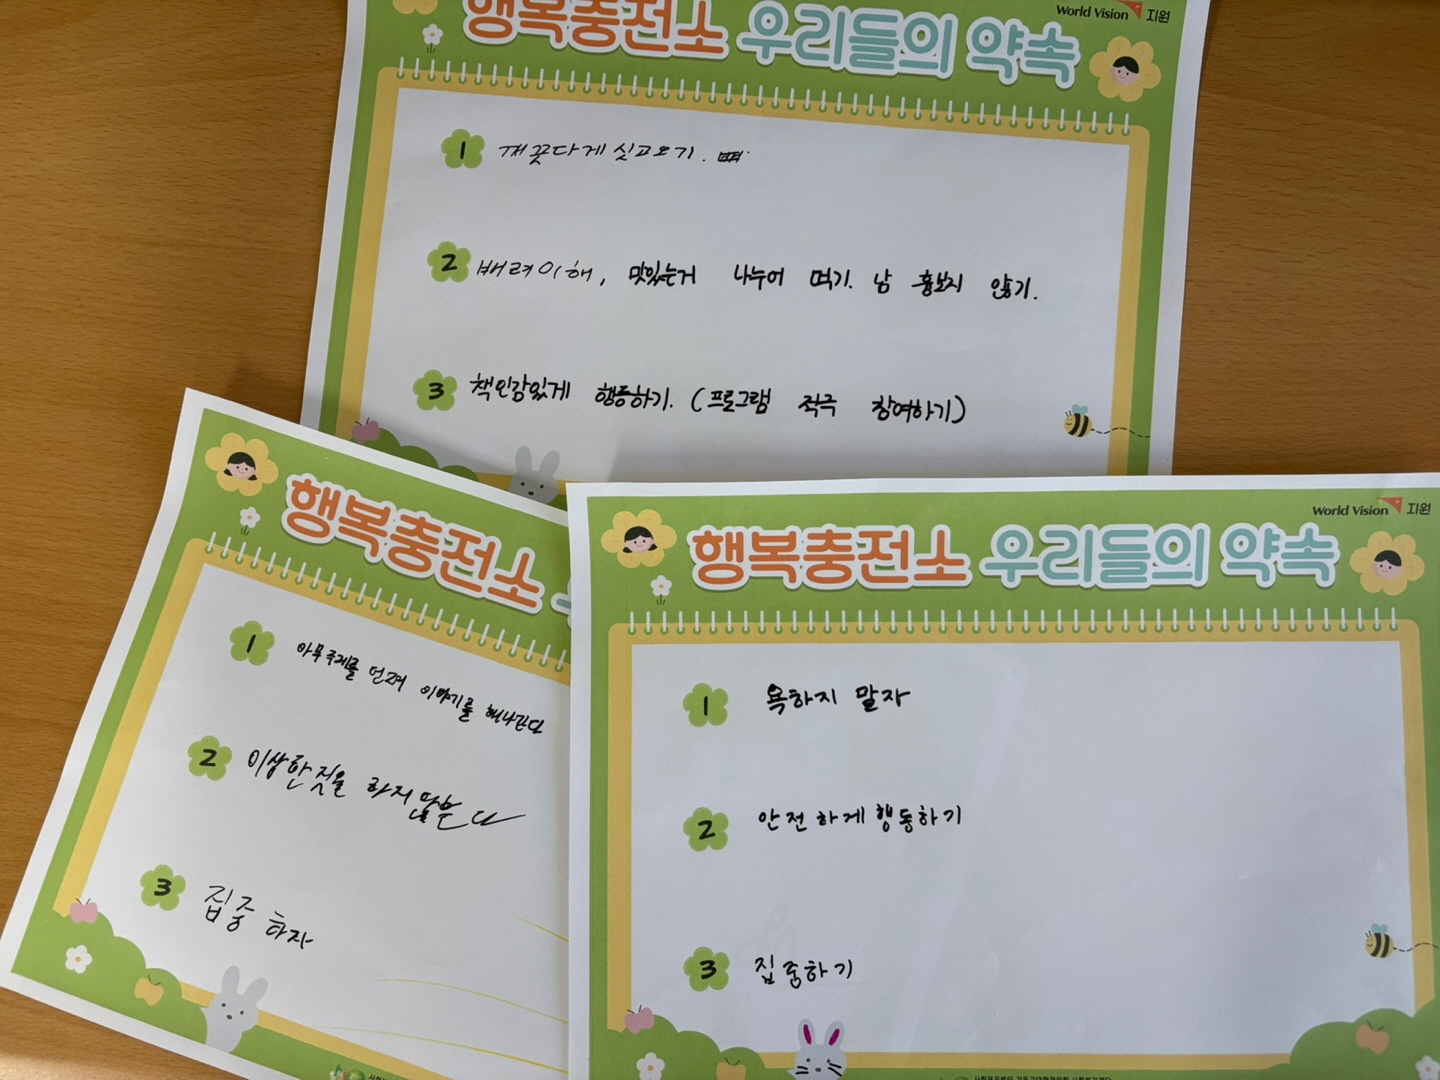 행복충전소 우리들의 약속
World Vision 지원
1 깨끗다게 싯고오기.
2 배려이해, 맛있는거 나누어 먹기. 남 흉보지 않기.
3 책임감있게 행동하기. (프로그램 적극 참여하기)
행복충전소
1 아무주제를 던져 이야기를 해나간다
2 이상한짓을 하지 않는다
3 집중 하자
행복충전소 우리들의 약속
World Vision 지원
1 욕하지 말자
2 안전하게 행동하기
3 집중하기